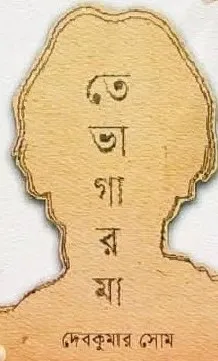 তে
ভা
গা
র
মা
দেবকুমার সোম